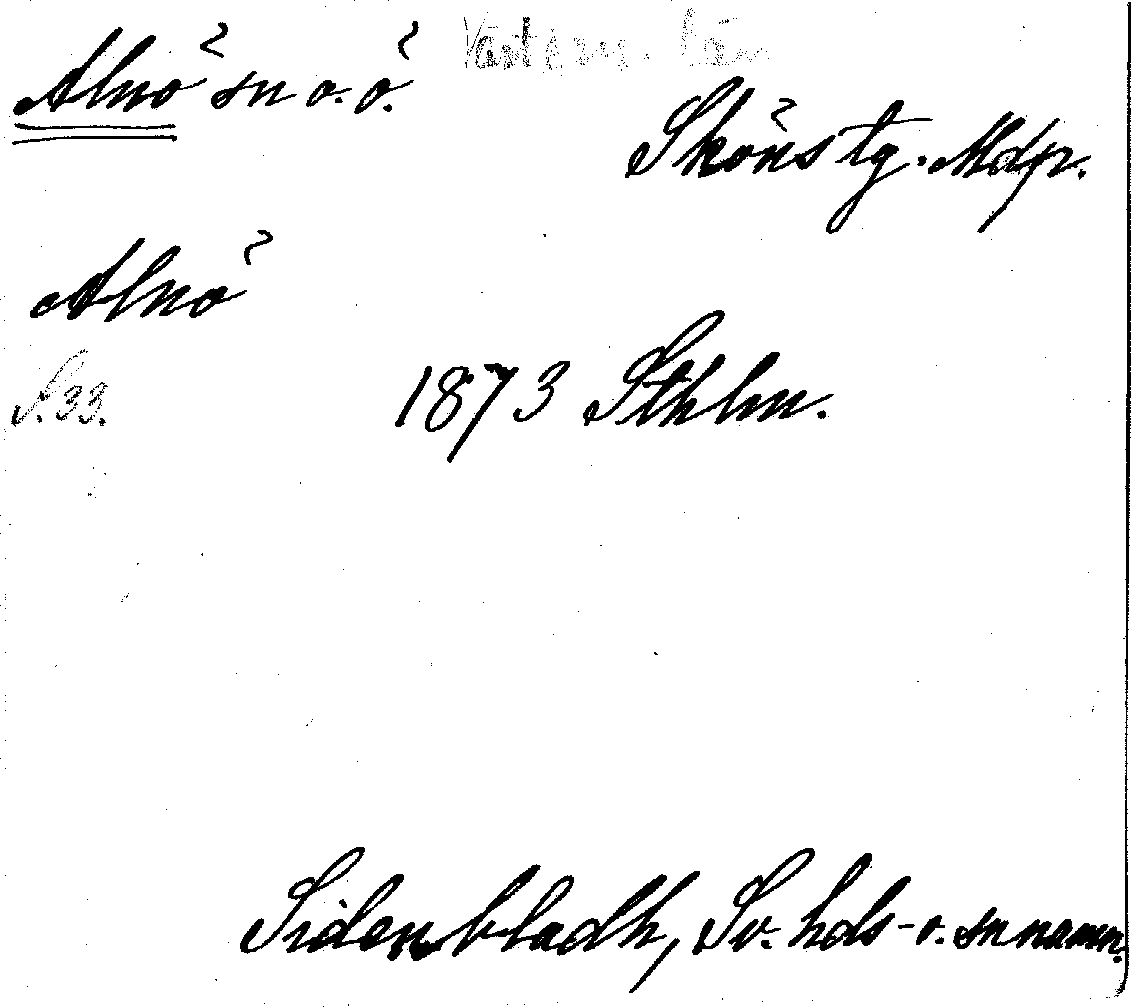 Alnö sn o. ö. Västern. län
Sköns tg. Mdp.
Alnö
S. 33.
1873 Sthlm.
Sidenbladh, Sv. hds- o. sn namn.